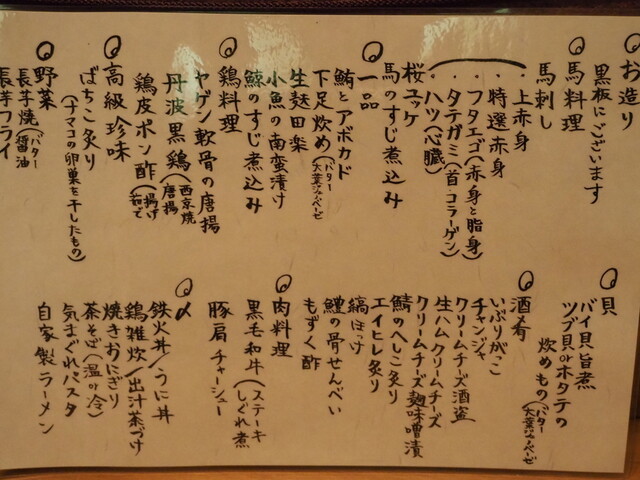 お造り
黒板にございます
馬料理
馬刺し
・上赤身
・特選赤身
・フタエゴ(赤身と脂身)
・タテガミ(首・コラーゲン)
・ハツ(心臓)
桜ユッケ
馬のすじ煮込み
一品
鮪とアボカド
下足炒め(バター 大葉ジェノベーゼ
生麩田楽
小魚の南蛮漬け
鯨のすじ煮込み
鶏料理
ヤゲン軟骨の唐揚
丹波黒鶏(西京焼 唐揚
鶏皮ポン酢(揚げ 茹で
高級珍味
ばちこ炙り
(ナマコの卵巣を干したもの)
野菜
長芋焼(バター 醤油
長芋フライ
貝
バイ貝旨煮
ツブ貝orホタテの
炒めもの(バター 大葉ジェノベーゼ
酒肴
いぶりがっこ
チャンジャ
クリームチーズ酒盗
生ハムクリームチーズ
クリームチーズ麹味噌漬
鯖のへしこ炙り
エイヒレ炙り
縞ほっけ
鱧の骨せんべい
もずく酢
肉料理
黒毛和牛(ステーキ しぐれ煮
豚肩チャーシュー
〆
鉄火丼/うに丼
鶏雑炊/出汁茶づけ
焼きおにぎり
茶そば(温or冷)
気まぐれパスタ
自家製ラーメン